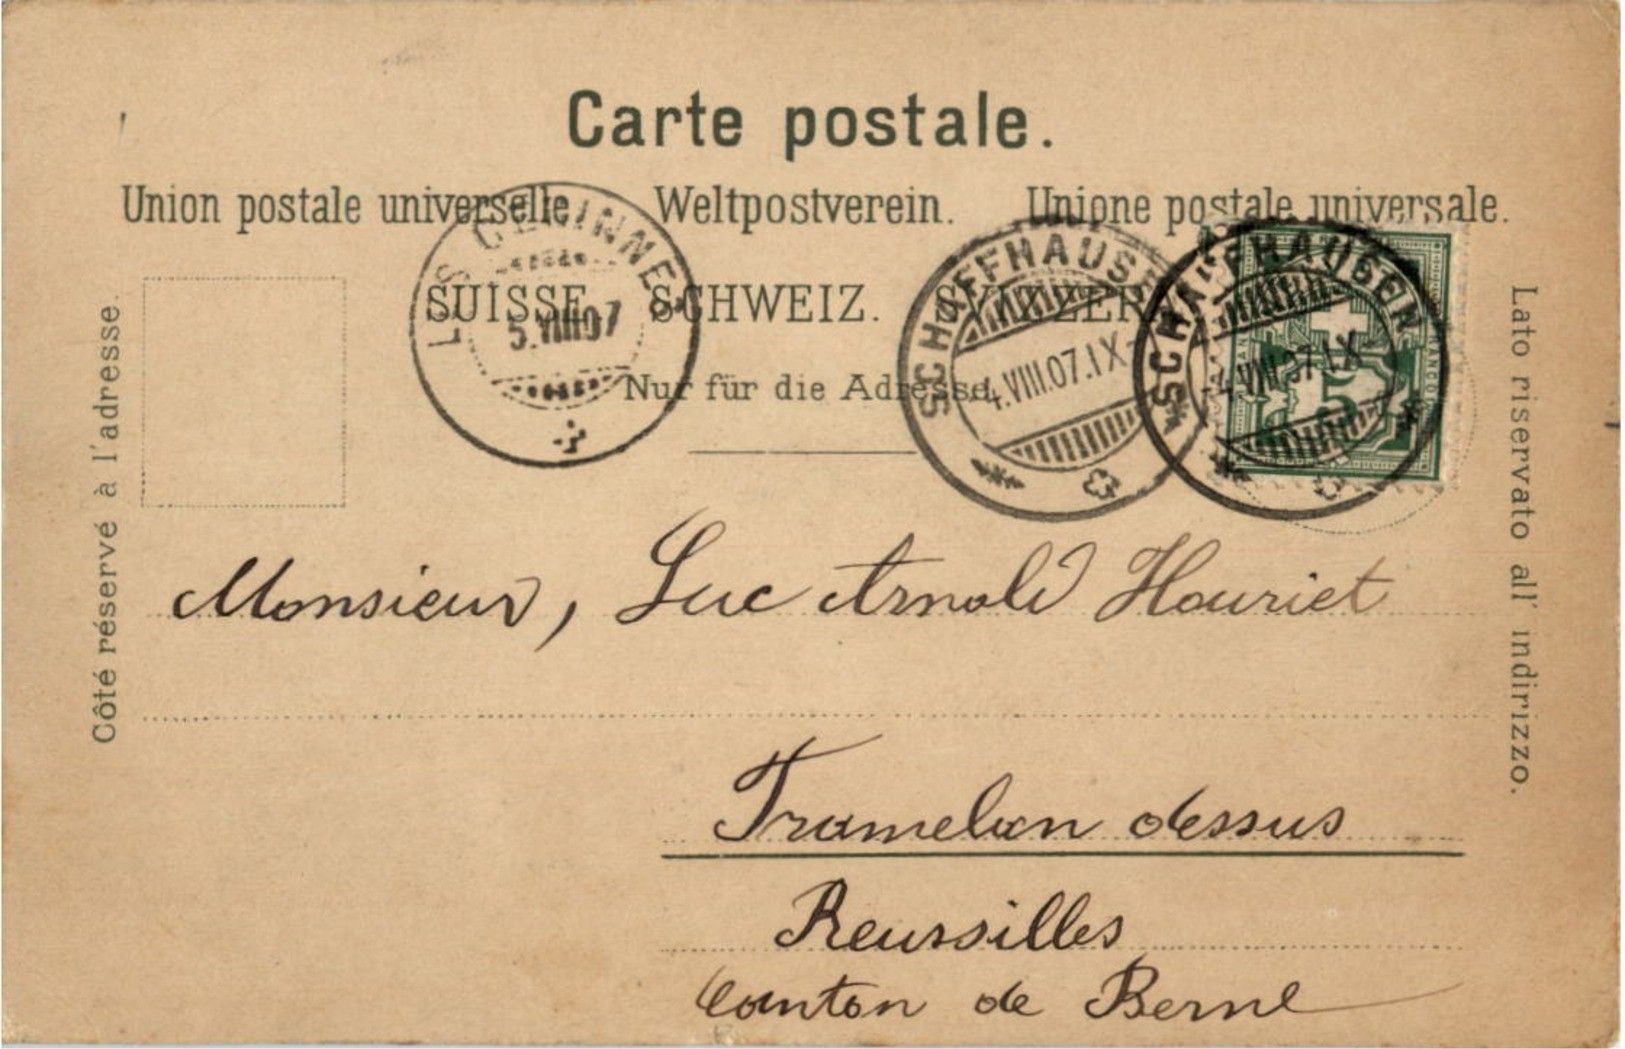 Carte postale.
Union postale universelle. Weltpostverein. Unione postale universale.
SUISSE. SCHWEIZ. SVIZZERA.
Nur für die Adresse.
Côté réservé à l'adresse.
Lato riservato all' indirizzo.
5.VIII.07
SCHAFFHAUSEN
4.VIII.07.IX-
SCHAFFHAUSEN
-4.VIII.07.IX-
5
Monsieur, Luc Arnold Houriet
Tramelan dessus
Reussilles
Canton de Berne